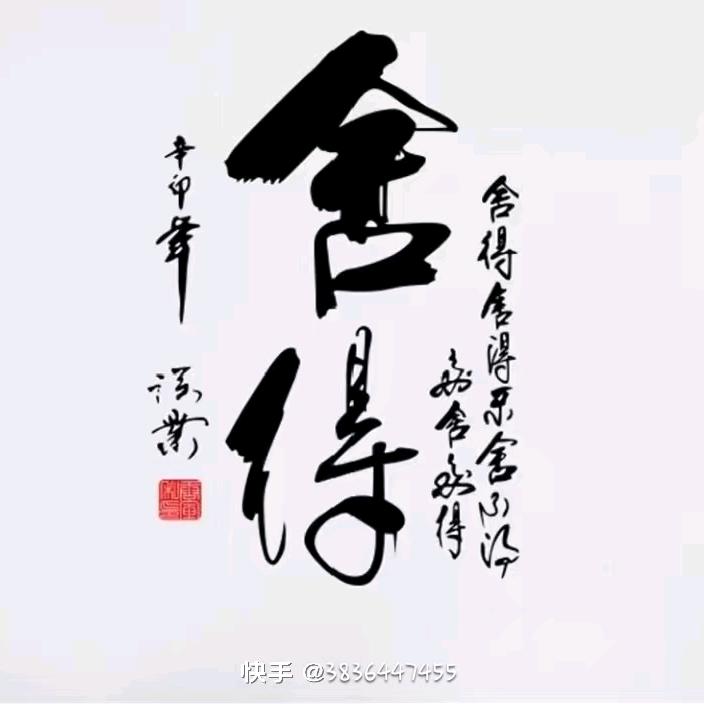 舍得
舍得舍得不舍不得
大舍大得
辛卯年
快手 @3836447455